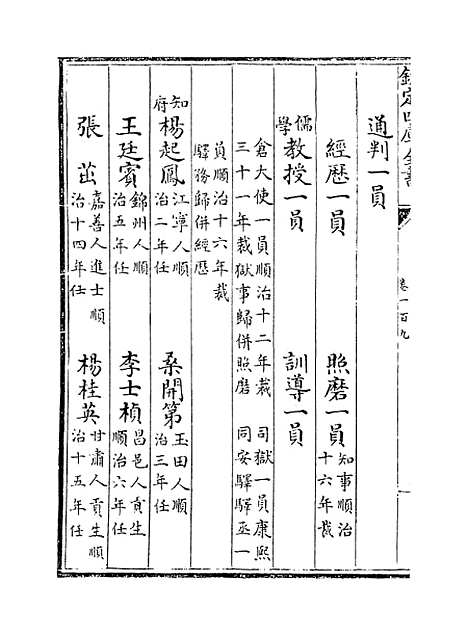 欽定四庫全書
卷一百九
通判一員
經歷一員
照磨一員 知事順治十六年裁
儒學教授一員
訓導一員
倉大使一員順治十二年裁 司獄一員康熙
三十一年裁獄事歸併照磨 同安驛驛丞一
員順治十六年裁
驛務歸併經歷
知府楊起鳳 江寧人順治二年任
桑開第 玉田人順治三年任
王廷賓 錦州人順治五年任
李士楨 昌邑人貢生順治六年任
張茁 嘉善人進士順治十四年任
楊桂英 甘肅人貢生順治十五年任